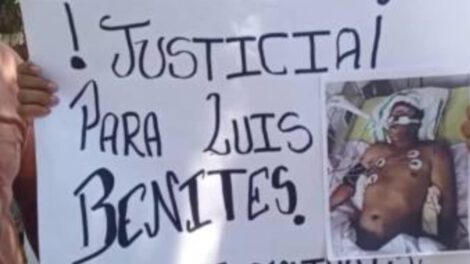 ! JUSTICIA!
PARA LUIS
BENITES.